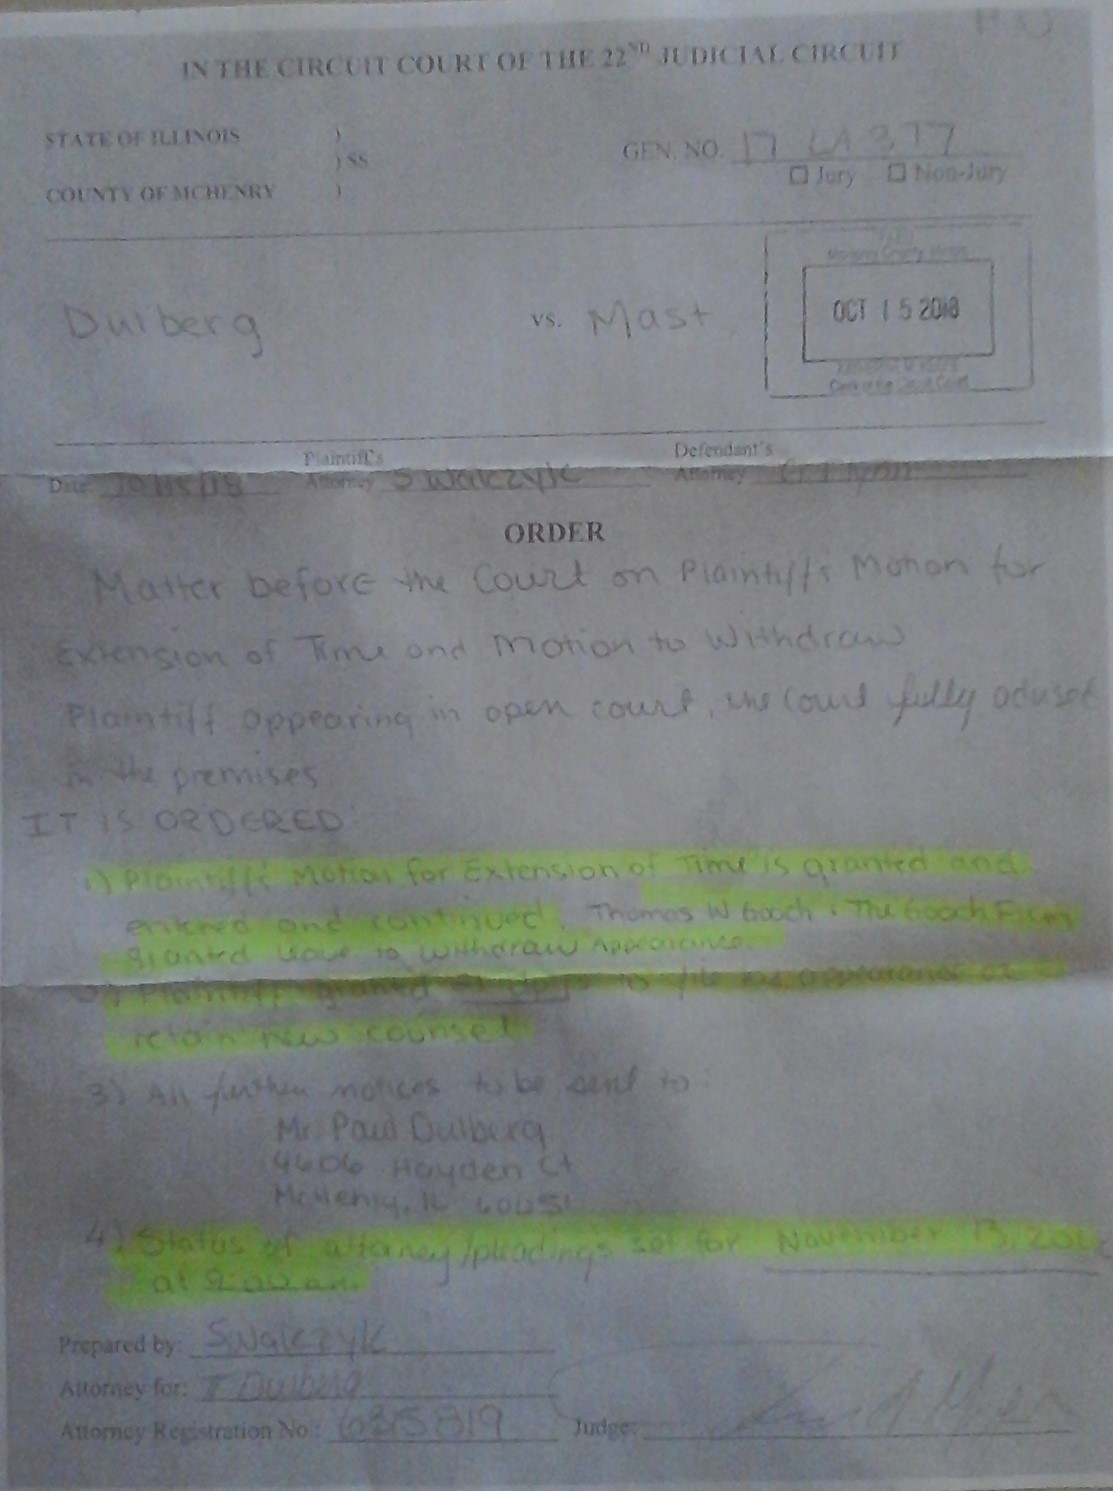 IN THE CIRCUIT COURT OF THE 22ND JUDICIAL CIRCUIT
STATE OF ILLINOIS )
) SS
COUNTY OF MCHENRY )
GEN. NO. 17 LA 377
☐ Jury ☐ Non-Jury
Dulberg vs. Mast
OCT 15 2018
Clerk of the Circuit Court
Plaintiff's Defendant's
Date: 10/15/18 Attorney SWalczyk Attorney
ORDER
Matter before the Court on Plaintiff's Motion for
Extension of Time and Motion to Withdraw
Plaintiff appearing in open court, the Court fully advised
in the premises
IT IS ORDERED:
1) Plaintiff's Motion for Extension of Time is granted and
entered and continued. Thomas W Gooch & The Gooch Firm
granted leave to withdraw Appearance.
2) Plaintiff granted days to file his appearance or
retain new counsel
3) All further notices to be sent to:
Mr. Paul Dulberg
4606 Hayden Ct
McHenry, IL 60051
4) Status of attorney/pleadings set for November 13, 2018
at
Prepared by: SWalczyk
Attorney for: Π Dulberg
Attorney Registration No.: 6315819 Judge: